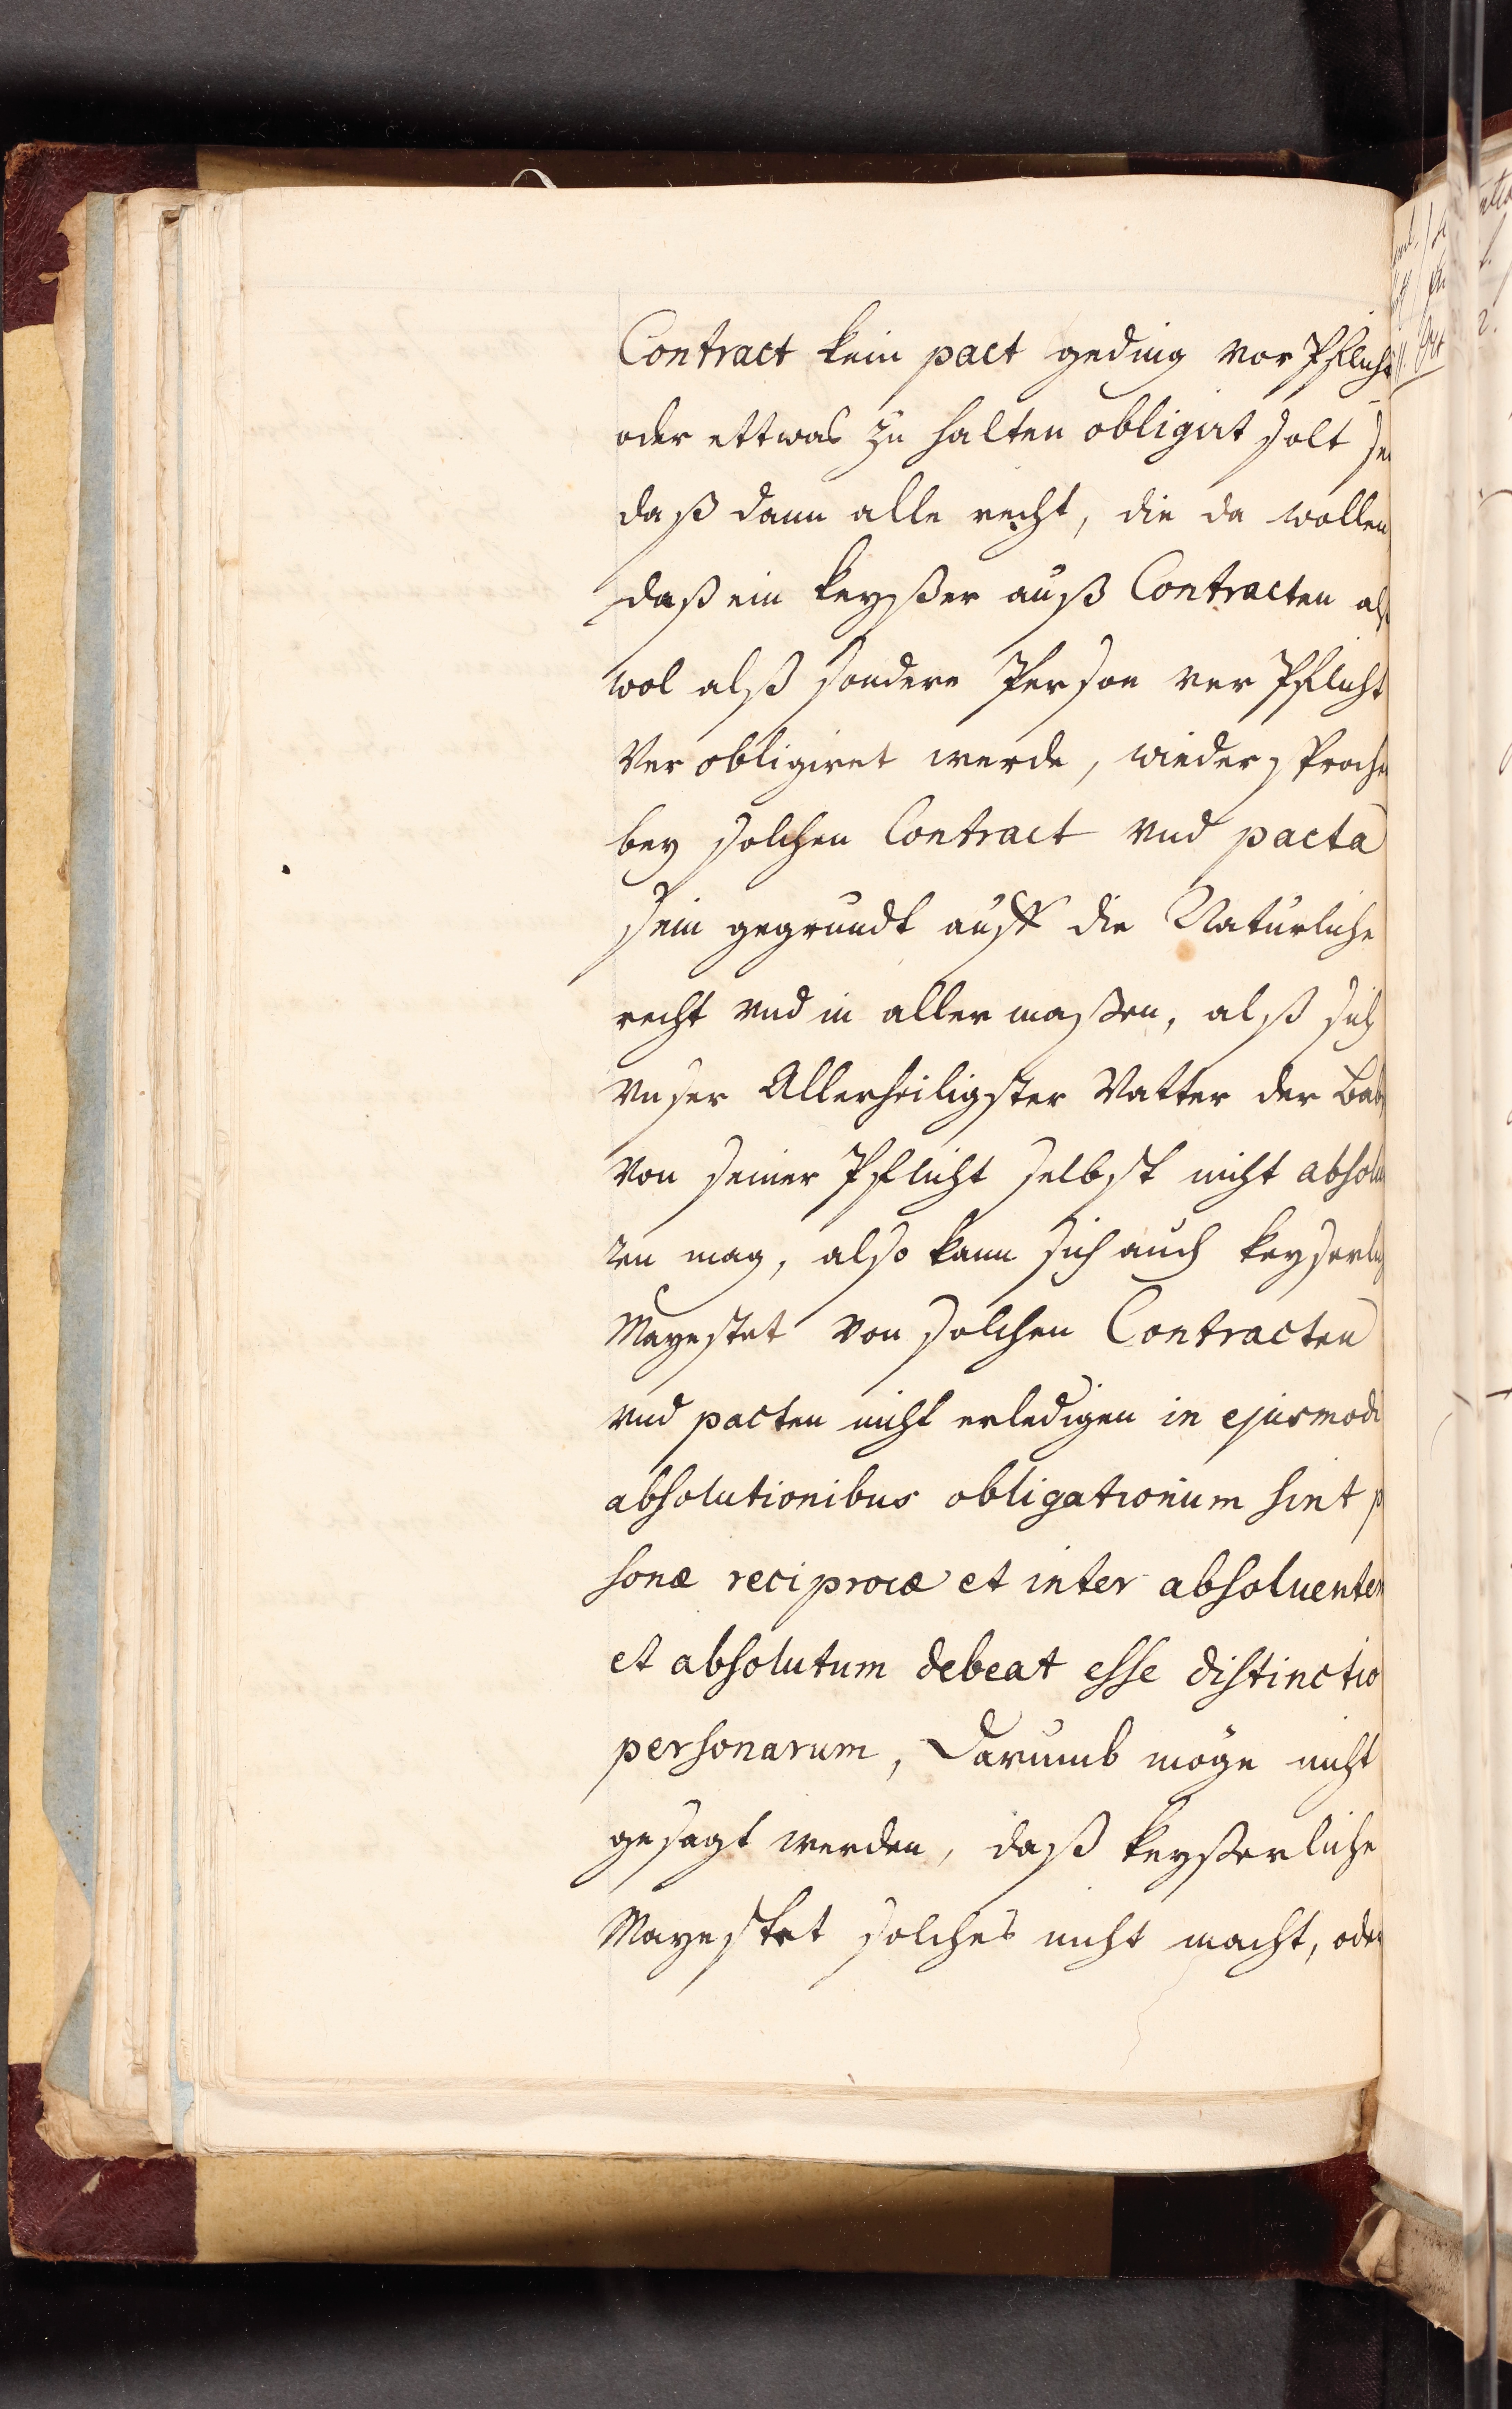 Contract kein pact geding vor Pflicht
oder ettwas zu halten obligirt solt sei
daß dann alle recht, die da wollen
daß ein keyßer auß Contracten als
wol alß sondere Person ver Pflicht
Ver obligiret werde, wiedersproche
bey solchen Contract vnd pacta
sein gegrundt auff die Naturliche
recht vnd in aller maßen, alß sich
vnser Allerheiligster Vatter der Bab
von seiner Pflicht selbst nicht absolu
ren mag, also kann sich auch keyserlich
Mayestet von solchen Contracten
vnd pacten nicht erledigen in ejusmodi
absolutionibus obligationum sint p
sonæ reciprocæ et inter absoluentem
et absolutum debeat esse distinctio
personarum, Darumb möge nicht
gesagt werden, daß keyßerliche
Mayestet solches nicht macht, oder